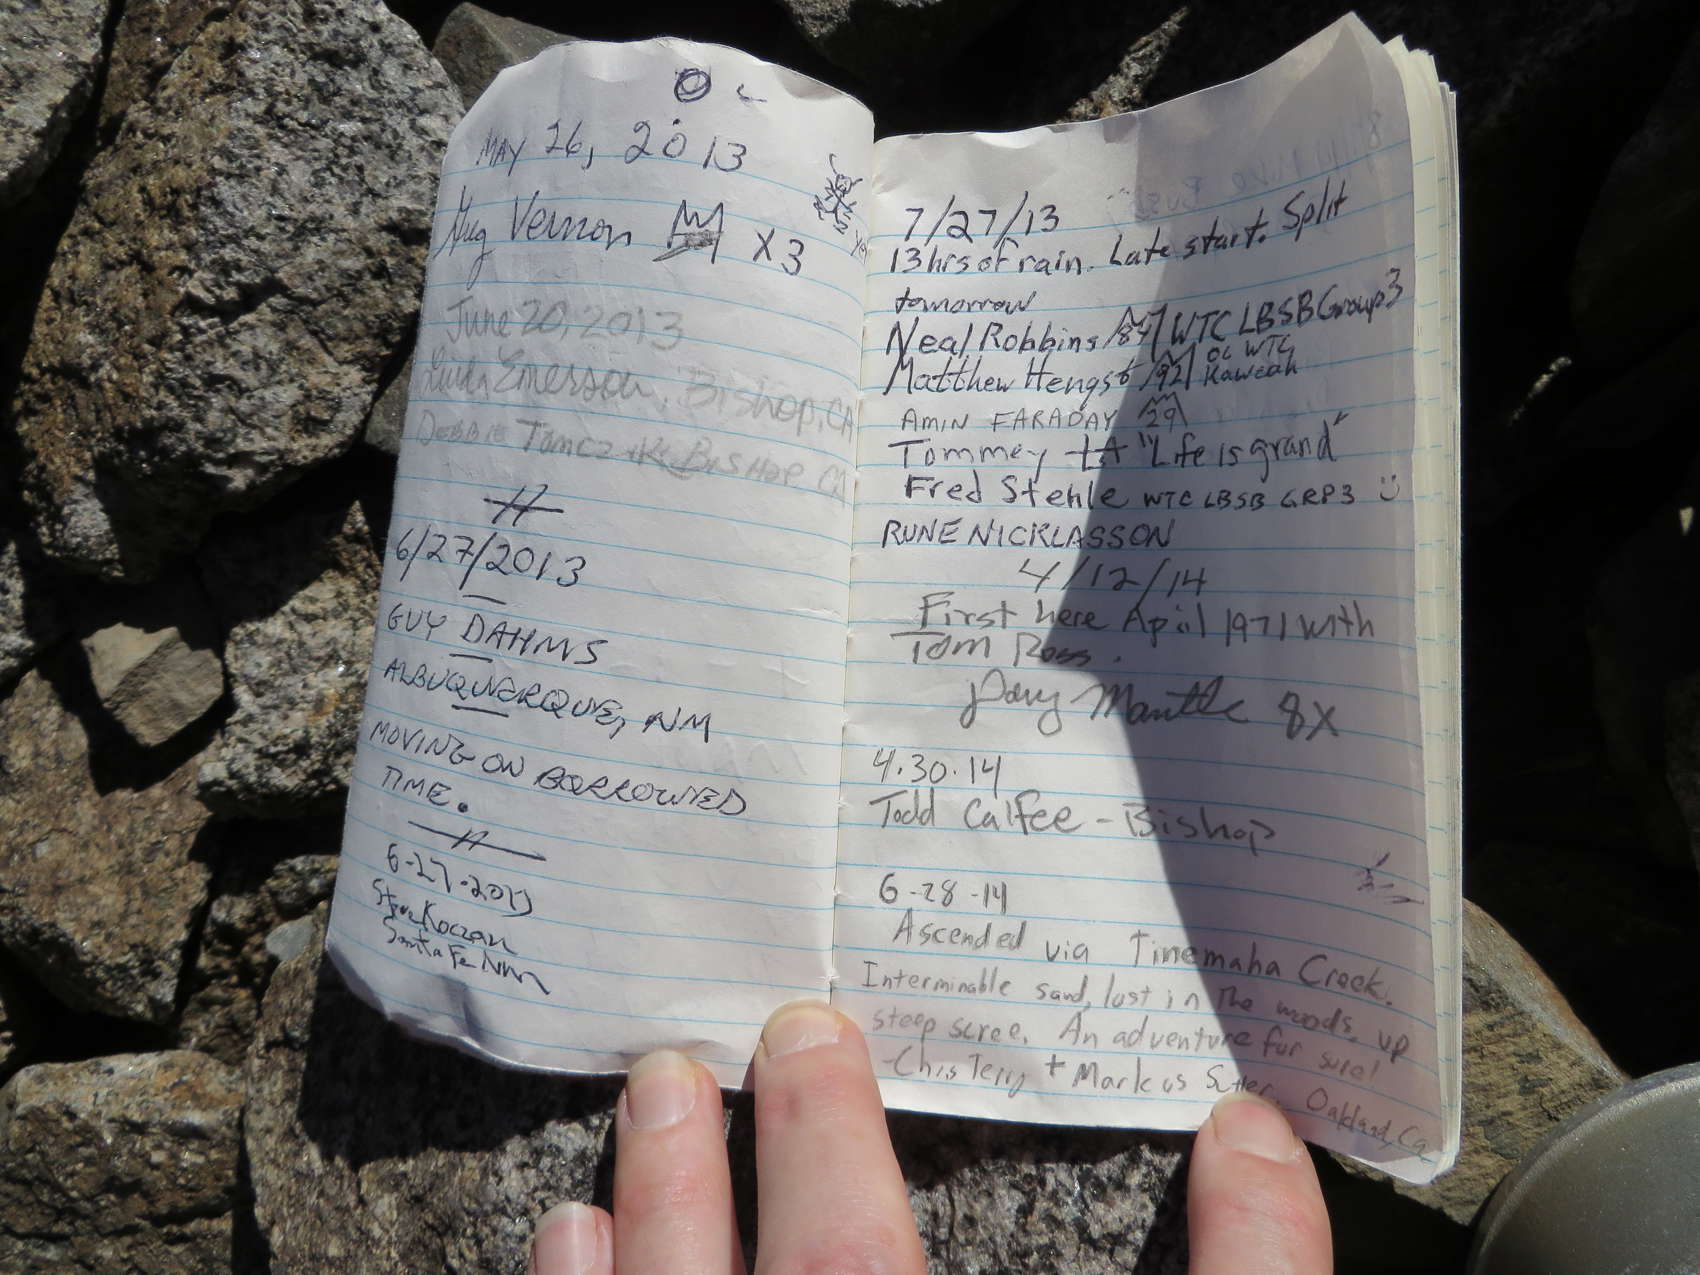 MAY 26, 2013
Greg Vernon x3
June 20, 2013
Linda Emerson, Bishop, CA
DEBBIE BISHOP CA
6/27/2013
GUY DAHMS
ALBUQUERQUE, NM
MOVING ON BORROWED
TIME.
6-27-2013
Steve Koczan
Santa Fe NM
7/27/13
13 hrs of rain. Late start. Split
tomorrow
Neal Robbins /84\ WTC LBSB Group 3
Matthew Hengst /92\ OC WTC
Kaweah
AMIN FARADAY 29
Tommey LA "Life is grand"
Fred Stehle WTC LBSB GRP3 :)
RUNE NICKLASSON
4/12/14
First here April 1971 with
Tom Ross.
Mantle 8X
4.30.14
Todd Calfee - Bishop
6-28-14
Ascended via Tinemaha Creek.
Interminable sand, lost in the woods, up
steep scree. An adventure for sure!
-Chris Terry + Markus Oakland, Ca